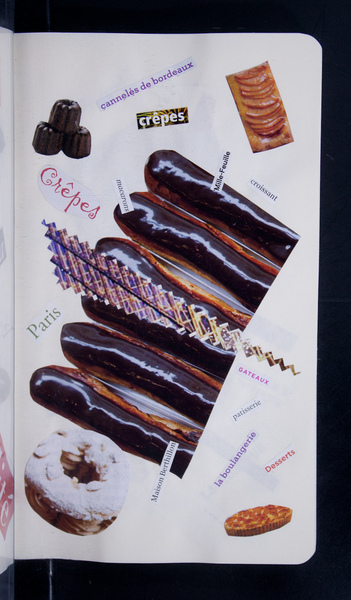 cannelés de bordeaux
crêpes
Crêpes
macarons
Mille-Feuille
croissant
Paris
GATEAUX
patisserie
la boulangerie
Desserts
Maison Berthillon